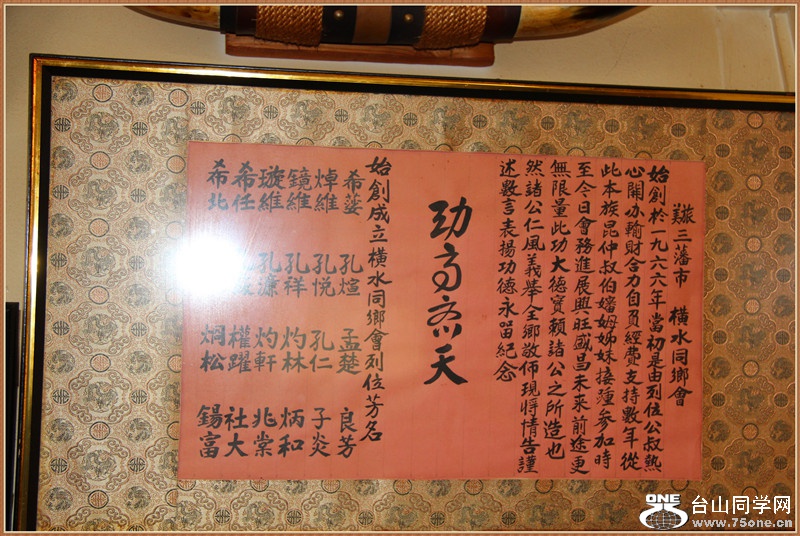 旅美三藩市 橫水同鄉會
始創於一九六六年當初是由列位公叔熱
心開办輸財合力自負經費支持數年從
此本族昆仲叔伯嬸姆姊妹接踵參加時
至今日會務進展興旺盛昌未來前途更
無限量此功大德實賴諸公之所造也
然諸公仁風義舉全鄉敬佈現將情告謹
述數言表揚功德永留紀念
功高齐天
始創成立橫水同鄉會列位芳名
希蓥 孔煊 孟楚 良芳
焯維 孔悅 孔仁 子炎
鏡維 孔祥 灼林 炳和
璇維 孔濂 灼軒 兆棠
希任 權躍 社大
希北 炯松 錫富
ONE 台山同学网
www.75one.cn